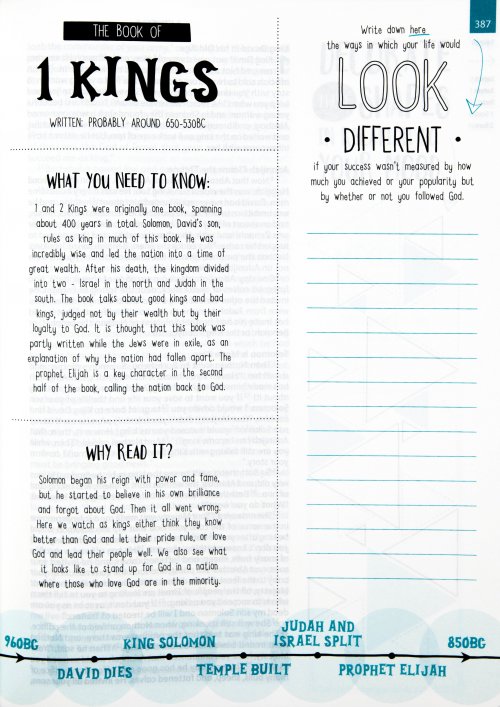 THE BOOK OF
1 KINGS
WRITTEN: PROBABLY AROUND 650-530BC
WHAT YOU NEED TO KNOW:
1 and 2 Kings were originally one book, spanning
about 400 years in total. Solomon, David's son,
rules as king in much of this book. He was
incredibly wise and led the nation into a time of
great wealth. After his death, the kingdom divided
into two - Israel in the north and Judah in the
south. The book talks about good kings and bad
kings, judged not by their wealth but by their
loyalty to God. It is thought that this book was
partly written while the Jews were in exile, as an
explanation of why the nation had fallen apart. The
prophet Elijah is a key character in the second
half of the book, calling the nation back to God.
WHY READ IT?
Solomon began his reign with power and fame,
but he started to believe in his own brilliance
and forgot about God. Then it all went wrong.
Here we watch as kings either think they know
better than God and let their pride rule, or love
God and lead their people well. We also see what
it looks like to stand up for God in a nation
where those who love God are in the minority.
387
Write down here
the ways in which your life would
LOOK
• DIFFERENT •
if your success wasn't measured by how
much you achieved or your popularity but
by whether or not you followed God.
960BC
DAVID DIES
KING SOLOMON
TEMPLE BUILT
JUDAH AND
ISRAEL SPLIT
PROPHET ELIJAH
850BC